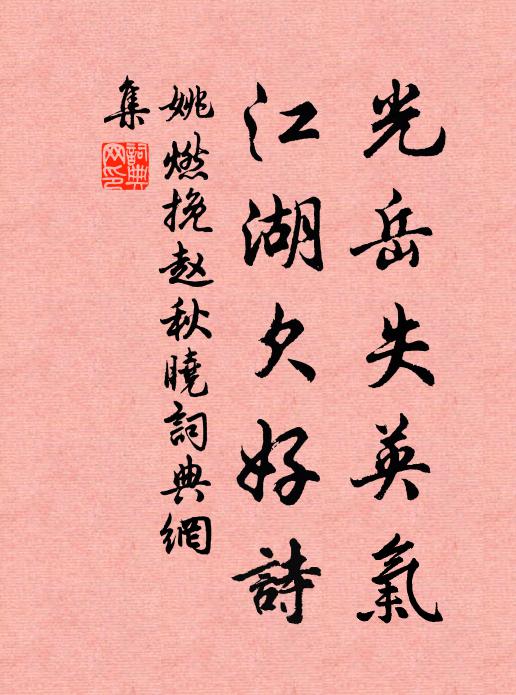 光岳失英氣
江湖欠好詩
姚燃挽赵秋曉詞典網
集
詞典網印